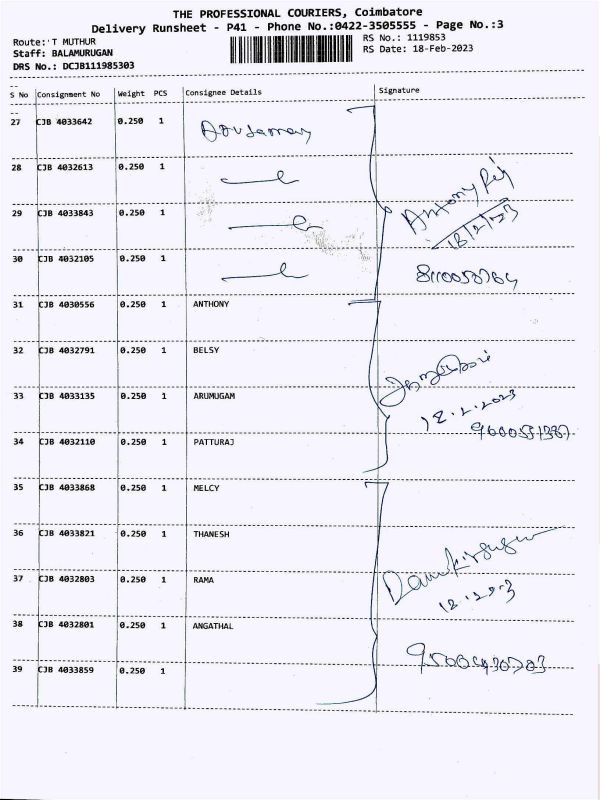 THE PROFESSIONAL COURIERS, Coimbatore
Delivery Runsheet - P41 - Phone No.:0422-3505555 - Page No.:3
Route: T MUTHUR
RS No.: 1119853
Staff: BALAMURUGAN
RS Date: 18-Feb-2023
DRS No.: DCJB111985303
S No Consignment No Weight PCS Consignee Details Signature
27 CJB 4033642 0.250 1
28 CJB 4032613 0.250 1
29 CJB 4033843 0.250 1
Antony
18/2/23
30 CJB 4032105 0.250 1
31 CJB 4030556 0.250 1 ANTHONY
32 CJB 4032791 0.250 1 BELSY
33 CJB 4033135 0.250 1 ARUMUGAM
18.2.2023
34 CJB 4032110 0.250 1 PATTURAJ
35 CJB 4033868 0.250 1 MELCY
36 CJB 4033821 0.250 1 THANESH
37 CJB 4032803 0.250 1 RAMA
38 CJB 4032801 0.250 1 ANGATHAL
39 CJB 4033859 0.250 1